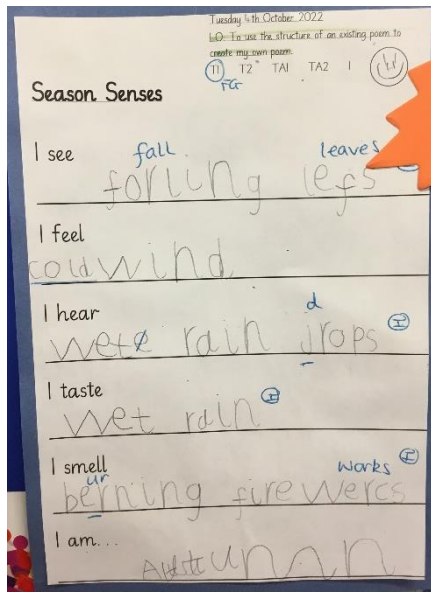 Tuesday 4th October 2022
LO: To use the structure of an existing poem to
create my own poem.
T1 T2 TA1 TA2 I
FG
Season Senses
I see fall leaves
forling lefs
I feel
cold wind
I hear d
wete rain jrops I
I taste
wet rain I
I smell works I
ur
berning firewercs
I am...
unnn